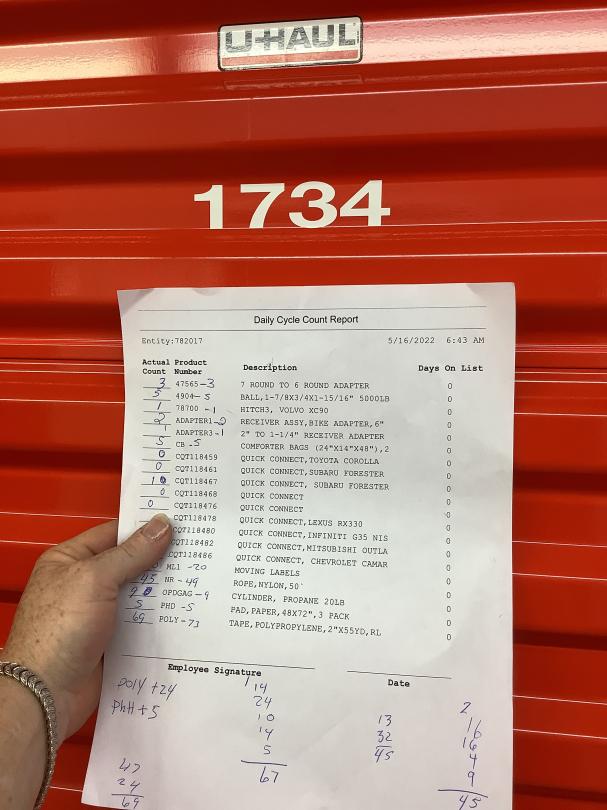 U-HAUL
1734
Daily Cycle Count Report
Entity:782017 5/16/2022 6:43 AM
Actual Product
Count Number Description Days On List
3 47565-3 7 ROUND TO 6 ROUND ADAPTER 0
5 4904-5 BALL,1-7/8X3/4X1-15/16" 5000LB 0
1 78700-1 HITCH3, VOLVO XC90 0
2 ADAPTER1-2 RECEIVER ASSY,BIKE ADAPTER,6" 0
1 ADAPTER3-1 2" TO 1-1/4" RECEIVER ADAPTER 0
5 CB-5 COMFORTER BAGS (24"X14"X48"),2 0
0 CQT118459 QUICK CONNECT,TOYOTA COROLLA 0
0 CQT118461 QUICK CONNECT,SUBARU FORESTER 0
CQT118467 QUICK CONNECT, SUBARU FORESTER 0
0 CQT118468 QUICK CONNECT 0
0 CQT118476 QUICK CONNECT 0
CQT118478 QUICK CONNECT,LEXUS RX330 0
CQT118480 QUICK CONNECT,INFINITI G35 NIS 0
CQT118482 QUICK CONNECT,MITSUBISHI OUTLA 0
CQT118486 QUICK CONNECT, CHEVROLET CAMAR 0
ML1-20 MOVING LABELS 0
45 NR-49 ROPE,NYLON,50' 0
OPDGAG-9 CYLINDER, PROPANE 20LB 0
5 PHD-5 PAD,PAPER,48X72",3 PACK 0
69 POLY-73 TAPE,POLYPROPYLENE,2"X55YD,RL 0
Employee Signature Date
poly +24
PhH +5
14
24
10
14
5
67
13
32
45
2
16
16
4
9
45
47
24
69